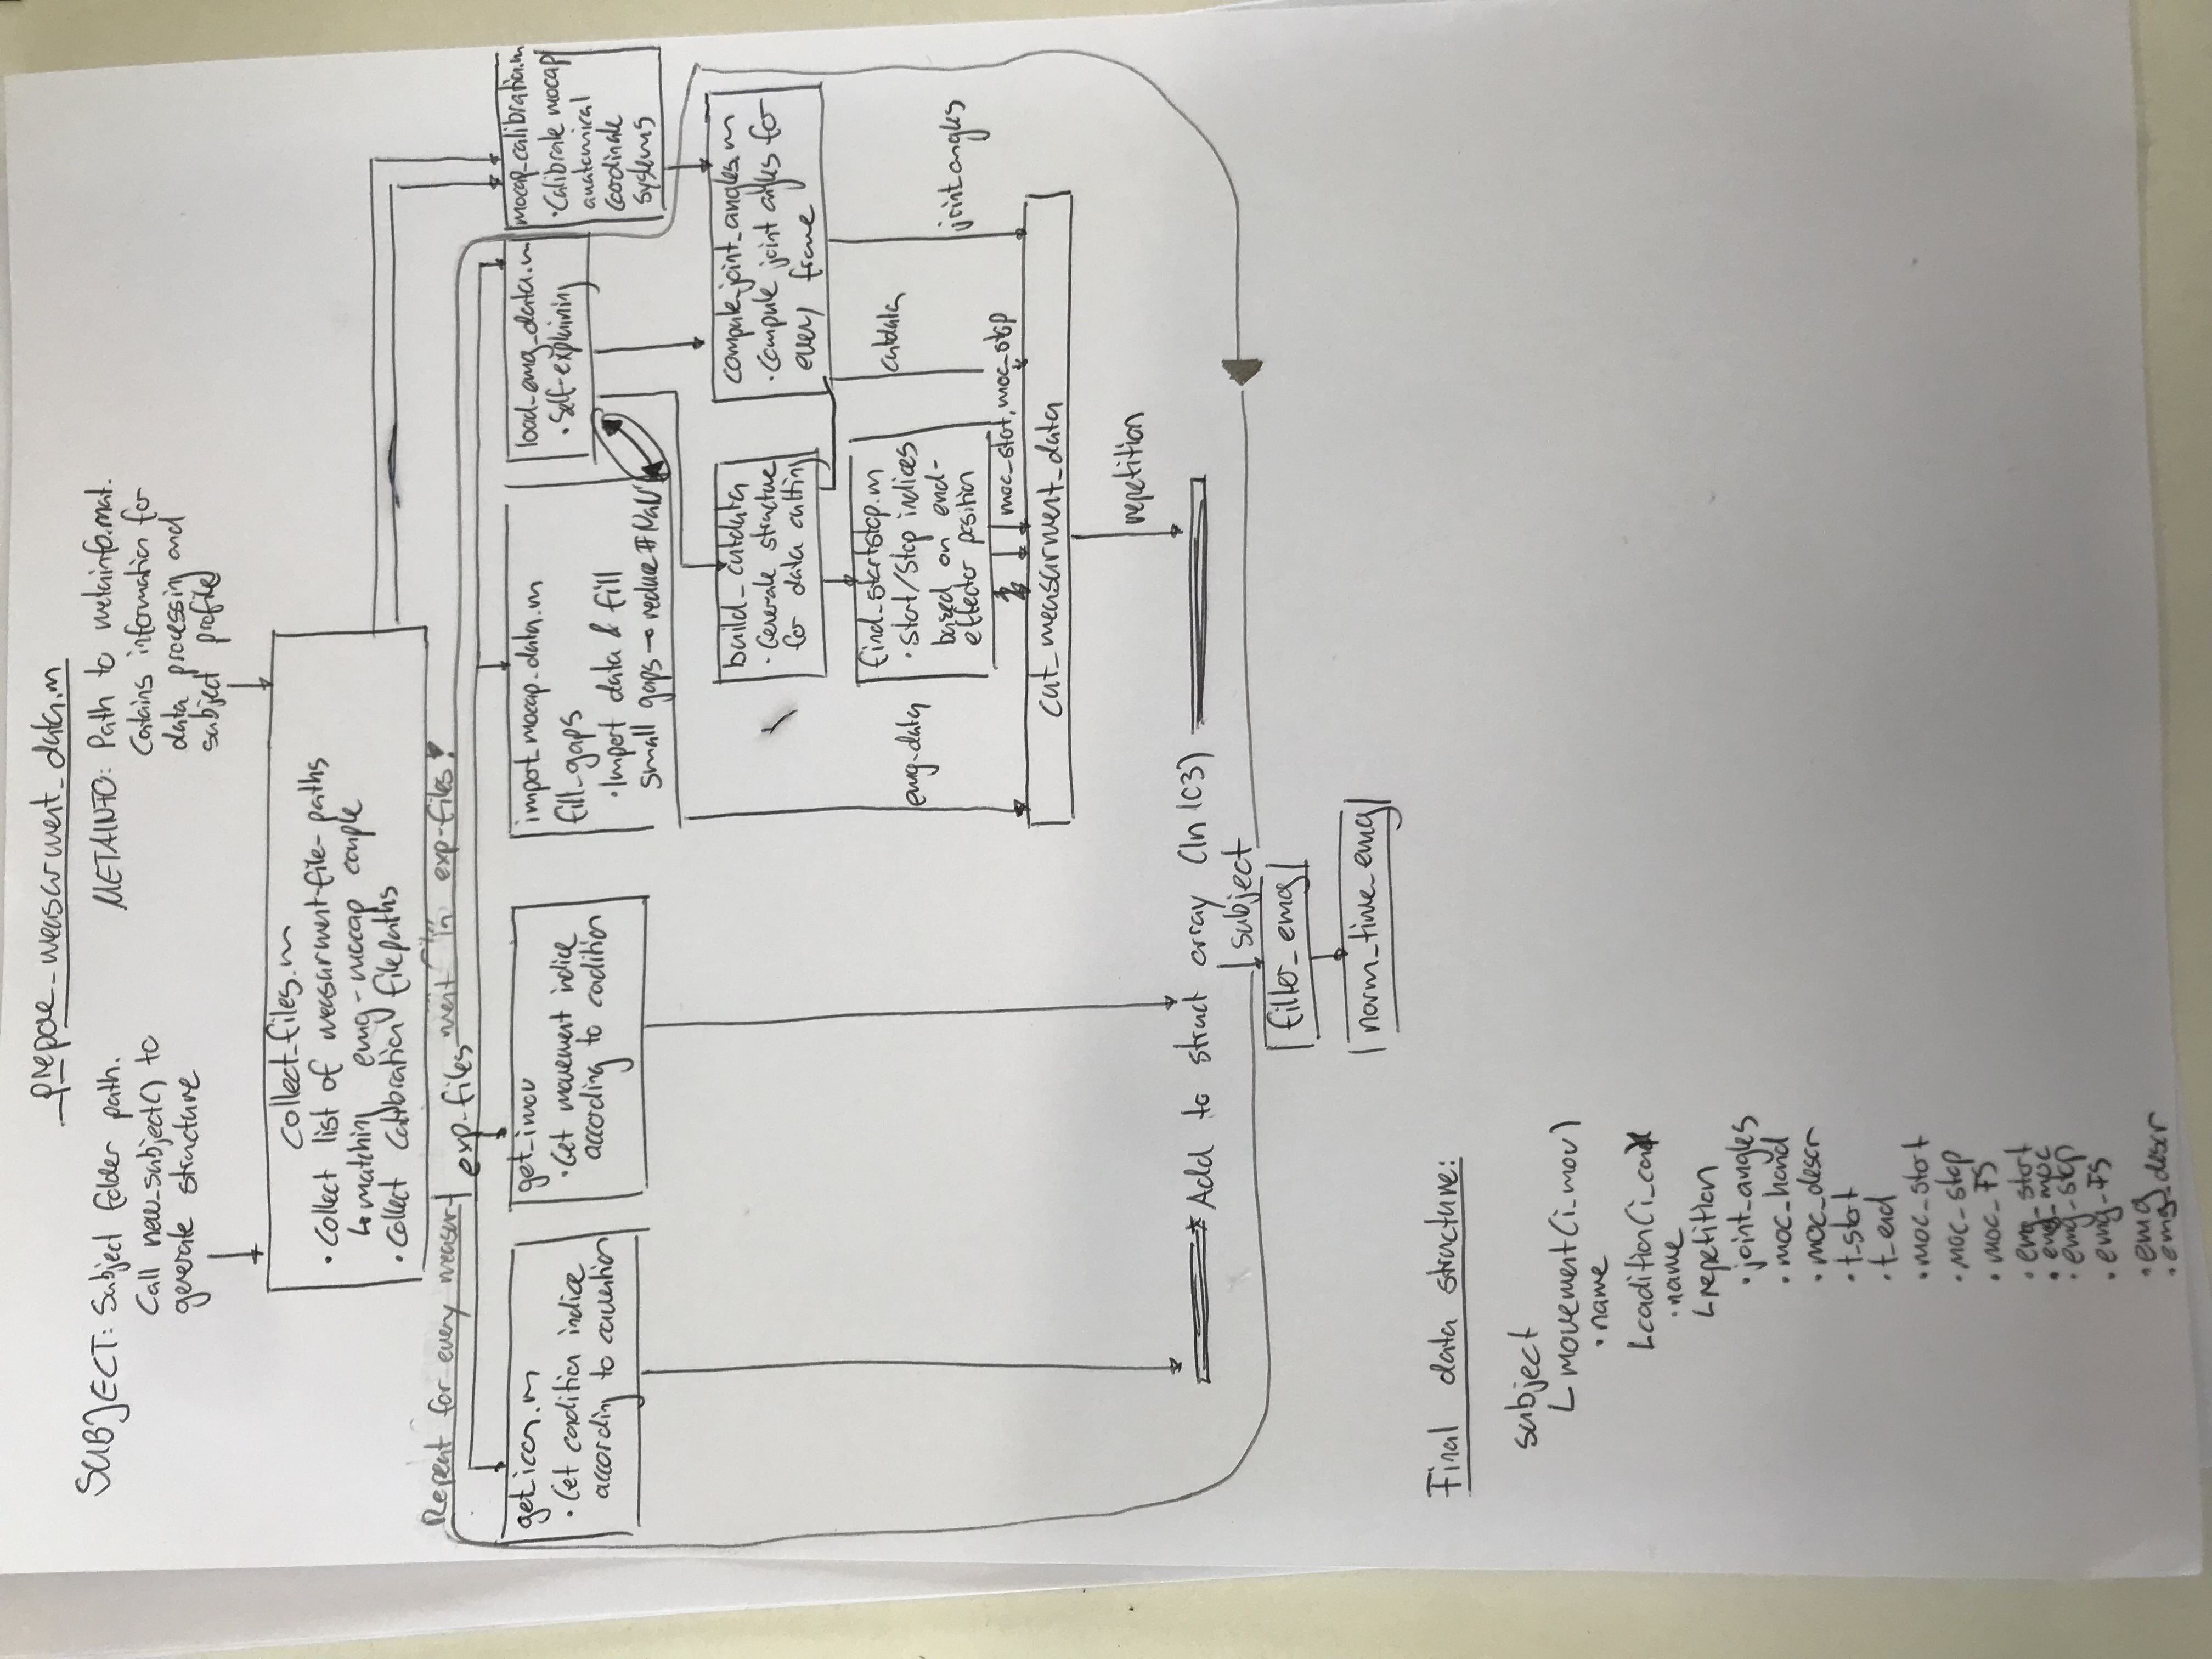 prepare_measurment_data.m
SUBJECT: Subject folder path.
Call new_subject() to
generate structure
METAINFO: Path to metainfo.mat.
Contains information for
data processing and
subject profile
collect_files.m
• Collect list of measurment-file-paths
↳ matching emg-mocap couple
• Collect Calibration filepaths
Repeat for every measurment in exp-files!
exp-files
get_icon.m
• Get condition indice
according to convention
get_imov
• Get movement indice
according to condition
import_mocap_data.m
fill_gaps
• Import data & fill
small gaps → reduce #NaN's
load_emg_data.m
• Self-explaining
mocap_calibration.m
• Calibrate mocap
anatomical
coordinate
systems
build_cutdata
• Generate structure
for data cutting
compute_joint_angles.m
• Compute joint angles for
every frame
find_startstop.m
• Start/Stop indices
based on end-
effector position
emg-data
cutdata
joint_angles
moc_start, moc_stop
cut_measurment_data
repetition
Add to struct array (ln 103)
subject
filter_emg
norm_time_emg
Final data structure:
subject
movement(i_mov)
• name
condition(i_con)
• name
repetition
• joint_angles
• moc_hand
• moc_descr
• t_start
• t_end
• moc_start
• moc_stop
• moc_FS
• emg_start
• emg_moc
• emg_stop
• emg_FS
• emg
• emg_descr